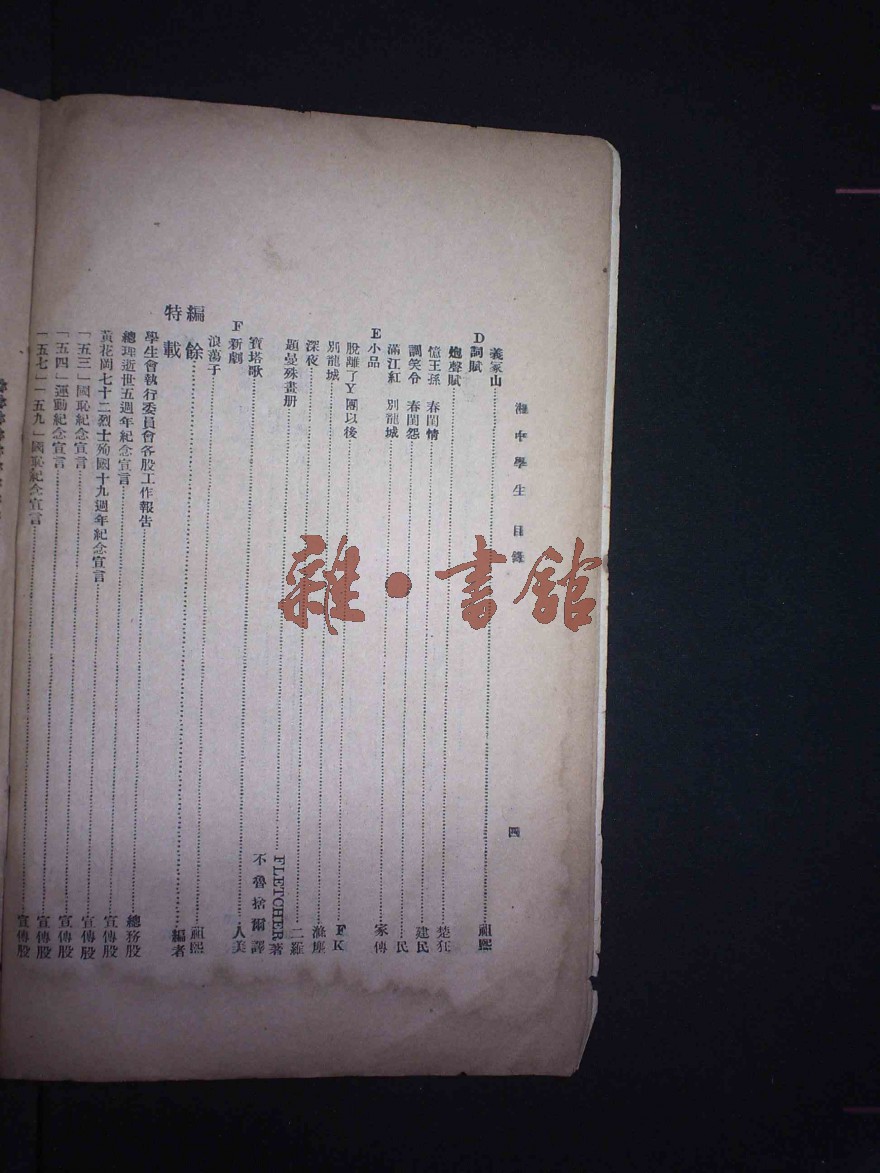 湘中學生 目錄 四
義冢山 祖熙
D詞賦
炮聲賦 楚狂
憶王孫 春閨情 建民
調笑令 春閨怨 民
滿江紅 別龍城 家傳
E小品
脫離了Y團以後 FK
別龍城 滌塵
深夜 二羅
題曼殊畫册 FLETCHER著
不魯捨爾譯
寶塔歌 人美
F新劇
浪蕩子 祖熙
編餘 編者
特載
學生會執行委員會各股工作報告 總務股
總理逝世五週年紀念宣言 宣傳股
黃花岡七十二烈士殉國十九週年紀念宣言 宣傳股
「五三」國恥紀念宣言 宣傳股
「五四」運動紀念宣言 宣傳股
「五七」「五九」國恥紀念宣言 宣傳股
雜·書館